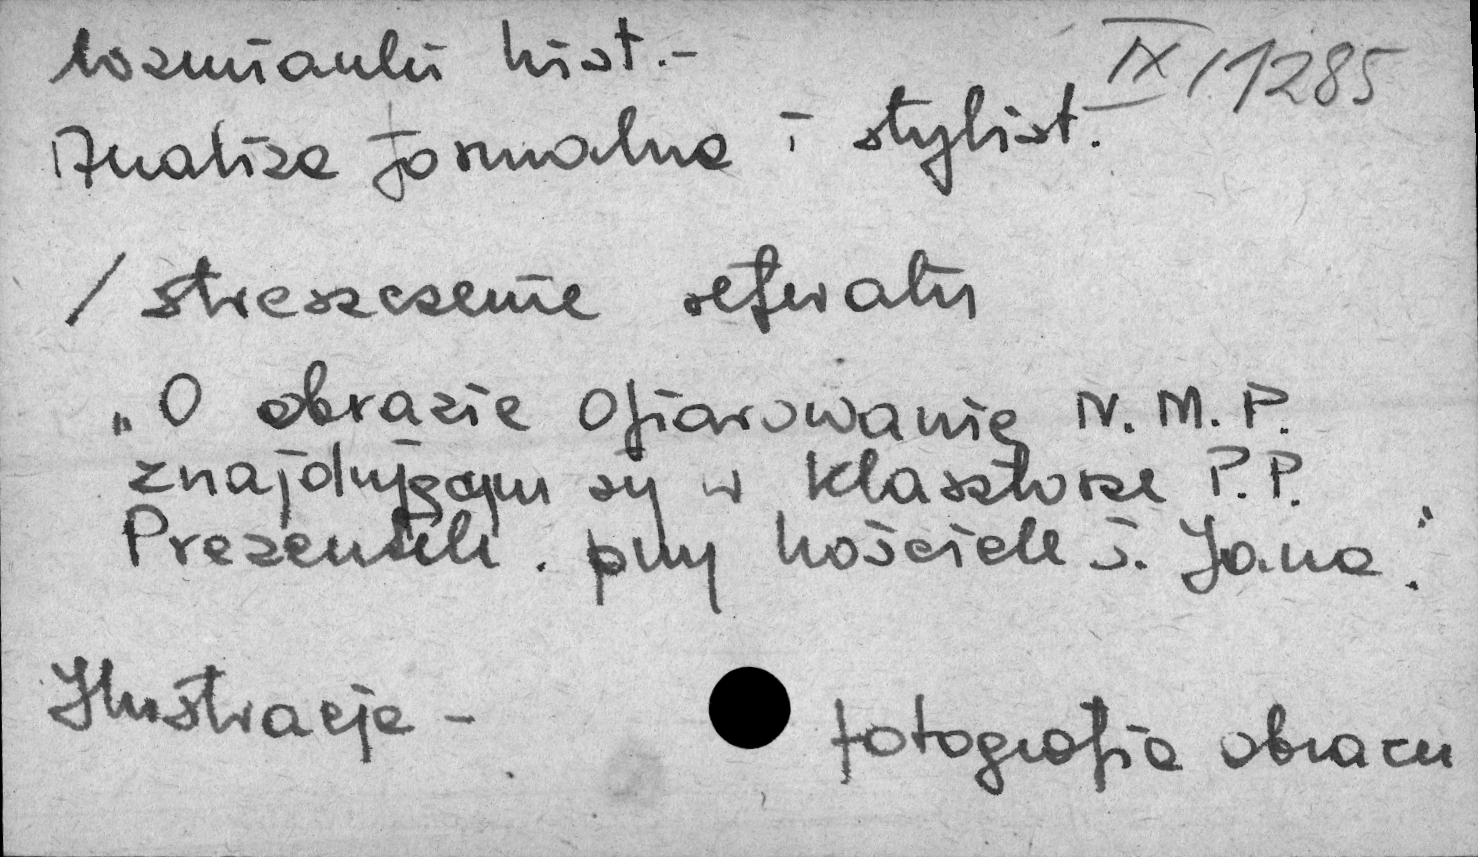 Wzmianki hist.-
IX/1285
Analiza formalna i stylist.
/ streszczenie referatu
„O obrazie Ofiarowanie N. M. P.
znajdującym się w Klasztorze P.P.
Prezentek. przy kościele ś. Jana."
Ilustracje - fotografia obrazu